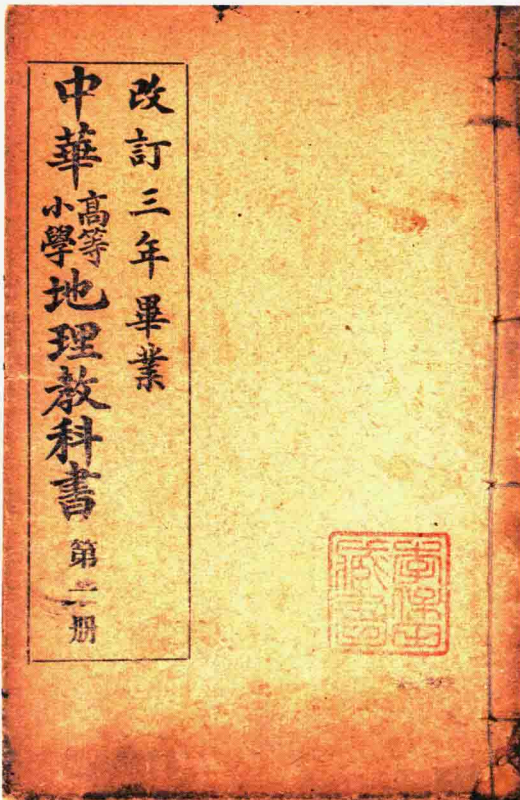 改訂三年畢業
中華高等小學地理教科書 第二册